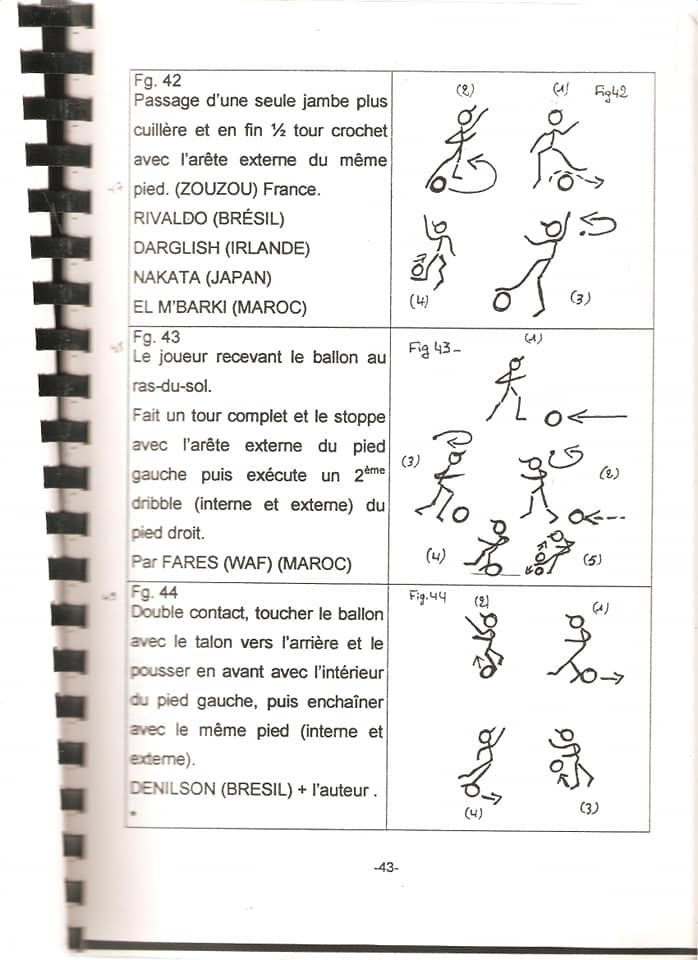 Fg. 42
Passage d'une seule jambe plus
cuillère et en fin ½ tour crochet
avec l'arête externe du même
pied. (ZOUZOU) France.
RIVALDO (BRÉSIL)
DARGLISH (IRLANDE)
NAKATA (JAPAN)
EL M'BARKI (MAROC)
(2) (1) Fig 42
(4) (3)
Fg. 43
Le joueur recevant le ballon au
ras-du-sol.
Fait un tour complet et le stoppe
avec l'arête externe du pied
gauche puis exécute un 2ème
dribble (interne et externe) du
pied droit.
Par FARES (WAF) (MAROC)
Fig 43- (1)
(3) (2)
(4) (5)
Fg. 44
Double contact, toucher le ballon
avec le talon vers l'arrière et le
pousser en avant avec l'intérieur
du pied gauche, puis enchaîner
avec le même pied (interne et
externe).
DENILSON (BRESIL) + l'auteur .
Fig.44 (2) (1)
(4) (3)
-43-